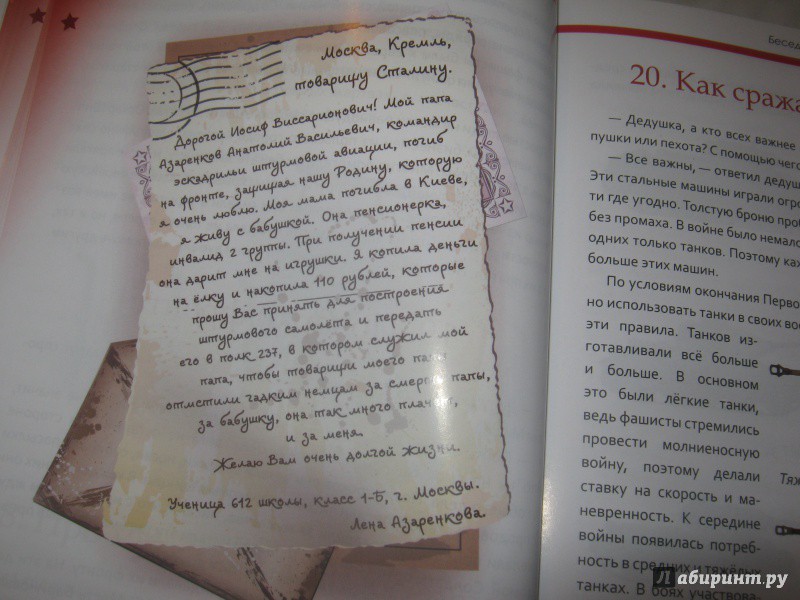 Москва, Кремль,
товарищу Сталину.
Дорогой Иосиф Виссарионович! Мой папа
Азаренков Анатолий Васильевич, командир
эскадрильи штурмовой авиации, погиб
на фронте, защищая нашу Родину, которую
я очень люблю. Моя мама погибла в Киеве,
я живу с бабушкой. Она пенсионерка,
инвалид 2 группы. При получении пенсии
она дарит мне на игрушки. Я копила деньги
на ёлку и накопила 110 рублей, которые
прошу Вас принять для построения
штурмового самолёта и передать
его в полк 237, в котором служил мой
папа, чтобы товарищи моего папы
отмстили гадким немцам за смерть папы,
за бабушку, она так много плачет,
и за меня.
Желаю Вам очень долгой жизни.
Ученица 612 школы, класс 1-Б, г. Москвы.
Лена Азаренкова.
Бесед
20. Как сража
— Дедушка, а кто всех важнее
пушки или пехота? С помощью чего
— Все важны, — ответил дедуш
Эти стальные машины играли огро
ти где угодно. Толстую броню проб
без промаха. В войне было немало
одних только танков. Поэтому каж
больше этих машин.
По условиям окончания Перво
но использовать танки в своих во
эти правила. Танков из-
готавливали всё больше
и больше. В основном
это были лёгкие танки,
ведь фашисты стремились
провести молниеносную
войну, поэтому делали
ставку на скорость и ма-
невренность. К середине
войны появилась потреб-
ность в средних и тяжёлых
танках. В боях участвова-
Тяж
Лабиринт.ру